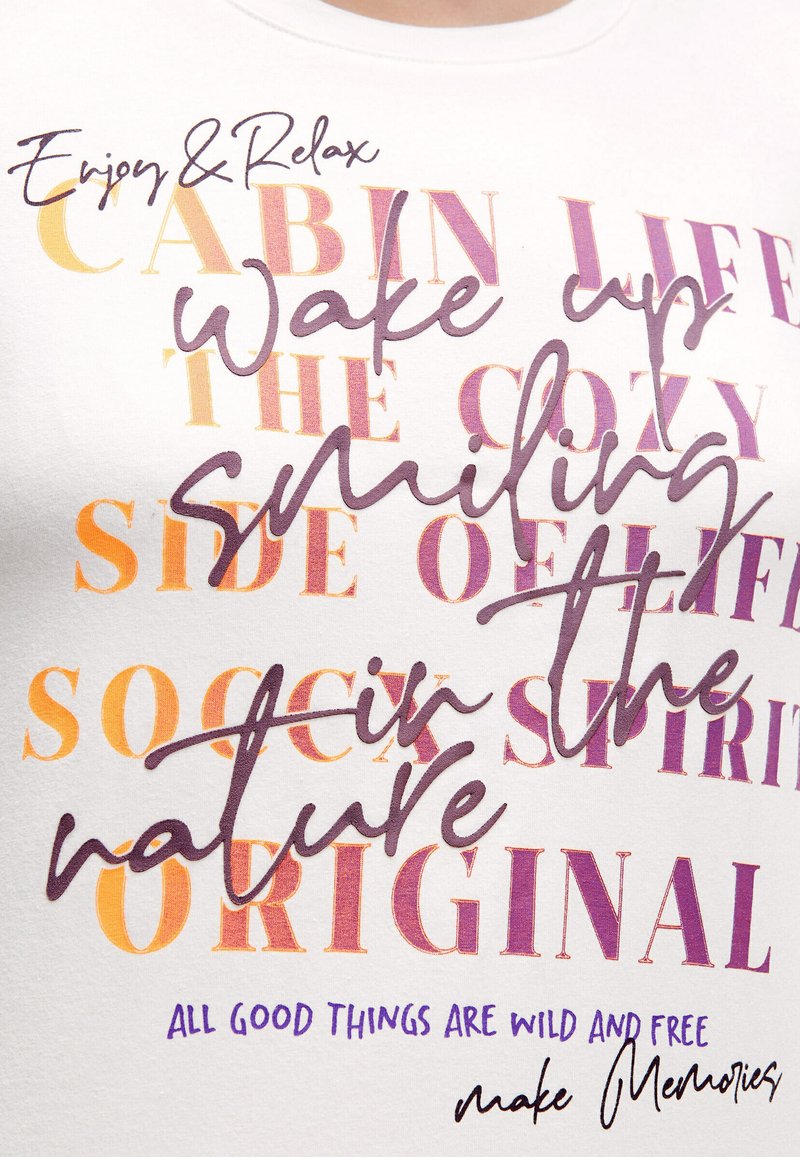 Enjoy & Relax
CABIN LIFE
wake up
THE COZY
smiling
SIDE OF LIFE
in the
SOCCX SPIRIT
nature
ORIGINAL
ALL GOOD THINGS ARE WILD AND FREE
make Memories